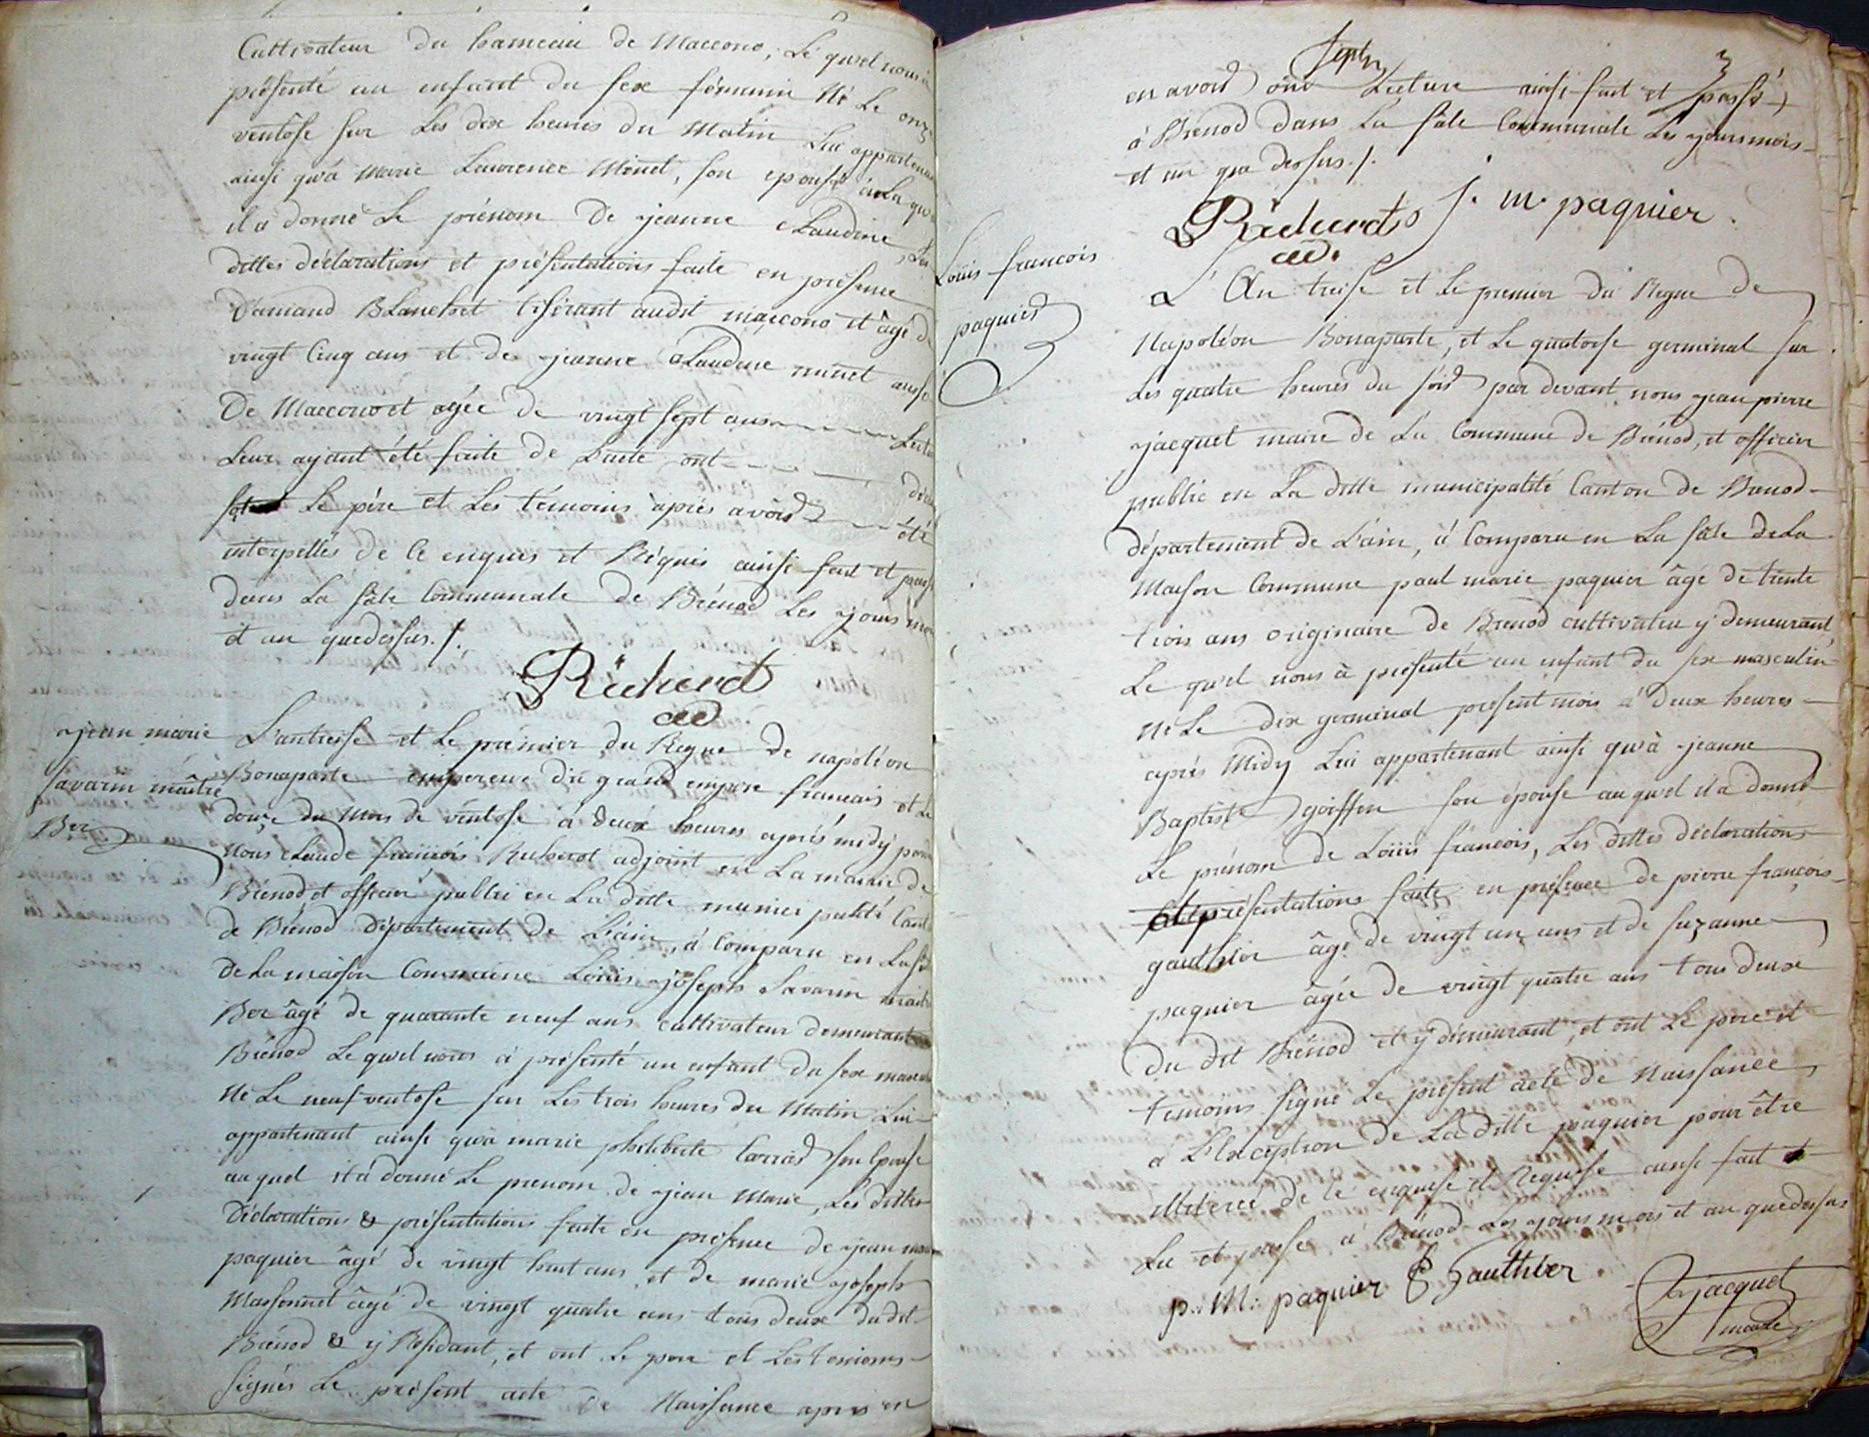 Cultivateur du hameau de Maccono, Le quel nous à
présenté un enfant du sexe féminin Né Le onze
ventôse sur Les dix heures du Matin Lui appartenant
ainsi qu'à Marie Laurence Minet, son epouse à La qu
il a donné Le prénom De jeanne Claudine, Les
dittes déclarations et présentations faite en présence
Damand Blanchet tisserant audit maccono et âgé de
vingt Cinq ans et de jeanne Claudine minet aussi
De Maccono et agée de vingt sept ans Lectu
Leur ayant été faite de Lacte ont décl
Le père et Les témoins après avoir été
interpellés de Ce enquis et Réquis ainsi fait et passé
dans La sâle Communale de Brénod Les jours mois
et an quedessus ./.
Richerot
ad
jean marie
savarin maître
Bez
L'antreise et Le premier du Regne de napoléon
Bonaparte empereur du grand empire francais et Le
douze du Mois de ventose à deux heures après midy par
Nous Claude francois Richerot adjoint en La mairie de
Brénod et officier public en La ditte municipalité Cant
de Brénod Département de L'ain, à Comparu en La sâ
De La maison Commune Louis joseph Savarin maitre
Bez âgé de quarante neuf ans cultivateur demeurant
Brénod Le quel nous à présenté un enfant du sexe mascu
Né Le neuf ventose sur Les trois heures du Matin Lui
appartenant ainsi qu'à marie philiberte Carrier son Epouse
au quel il à donné Le prenom de jean Marie, Les dittes
Déclarations & présentations faite en présence de jean marie
paquier âgé de vingt huit ans et de marie joseph
Massonnet âgé de vingt quatre ans tous deux du dit
Brénod & y Résidant, et ont Le pere et Les temoins
signés Le présent acte de Naissance apres en
3
en avoir ouï Lecture ainsi fait et passé
à Brénod dans La sâle Communale Les jours mois
et an que dessus ./.
Richerot
ad.
j. m. paquier.
Loüis francois
paquier
L'An treise et Le premier du Regne de
Napoléon Bonaparte, et Le quatorse germinal sur
Les quatre heures du soir par devant nous jean pierre
jacquet maire de La Commune de Brénod, et officier
public en La ditte municipalité Canton de Brenod
département de L'ain, à Comparu en La sâle de La
Maison Commune paul marie paquier âgé de trente
trois ans originaire de Brenod cultivateur y demeurant
Le quel nous à présenté un enfant du sexe masculin
Né Le dix germinal présent mois à deux heures
après Midy Lui appartenant ainsi qu'à jeanne
Baptiste goiffon son épouse au quel il a donné
Le prénom de Loüis francois, Les dittes déclarations
et présentations faite en présence de pierre françois
gauthier âgé de vingt un ans et de suzanne
paquier âgée de vingt quatre ans tous deux
du dit Brénod et y demeurant, et ont Le pere et
temoins signé Le présent acte de Naissance,
à L'Exception de La ditte paquier pour être
illiterée de ce enquise et Requise ainsi fait
Lu et passé à Brénod Les jours mois et an quedessus
p. M. paquier
Gauthier
jacquet
maire